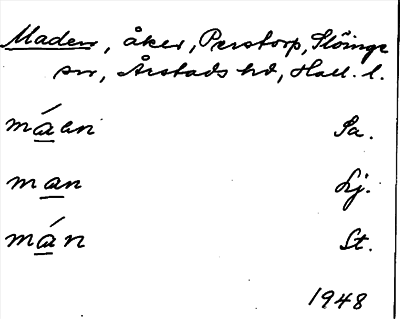 Maden, åker, Perstorp, Slöinge
sn, Årstads hd, Hall. l.
máan Sa.
man Lj.
mán St.
1948